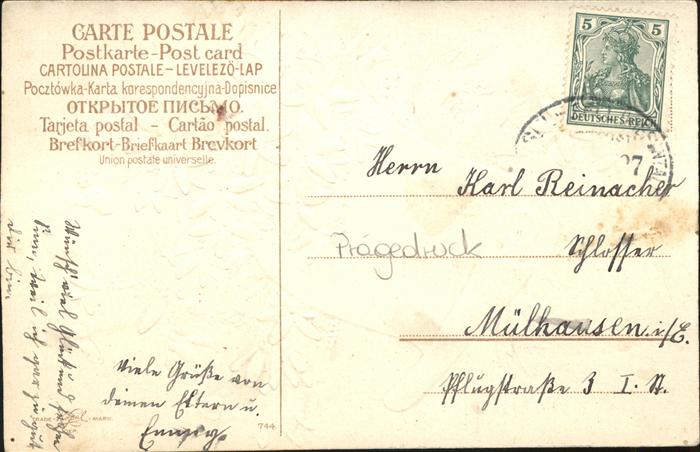 CARTE POSTALE
Postkarte-Post card
CARTOLINA POSTALE-LEVELEZÖ-LAP
Pocztówka-Karta korespondencyjna-Dopisnice
ОТКРЫТОЕ ПИСЬМО.
Tarjeta postal - Cartão postal.
Brefkort-Briefkaart Brevkort
Union postale universelle.
5 5
DEUTSCHES REICH
27
Herrn
Karl Reinacher
Prägedruck
Schlosser
Mülhausen i/E.
Pflugstraße 3 I. St.
viele Grüße von
deinen Eltern u.
TRADE MARK
744